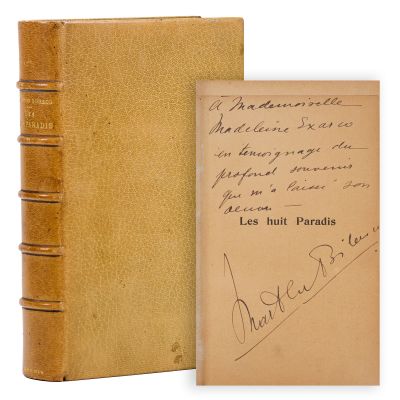 PARADIS
à Mademoiselle
Madeleine Exarco
en temoignage du
profond souvenir
que m'a laissé son
oeuvre —
Les huit Paradis
Marthe Bibesco